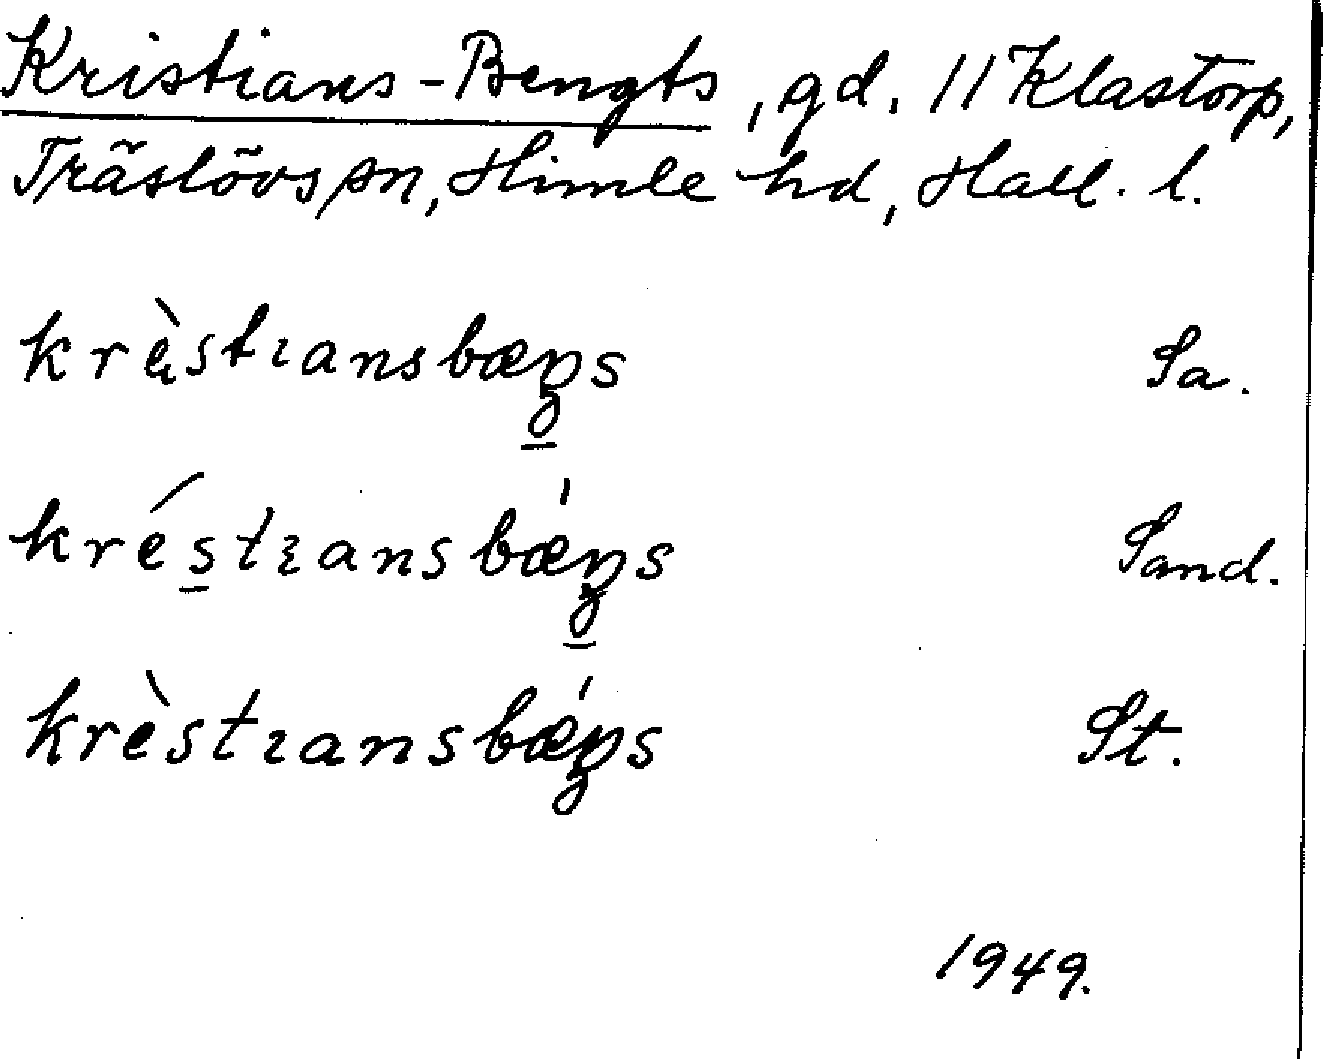 Kristians-Bengts, gd. 11 Klastorp,
Träslövs sn, Himle hd, Hall. l.
krèstıansbæŋs Sa.
kréstıansbǽŋs Sand.
krèstıansbǽŋs St.
1949.